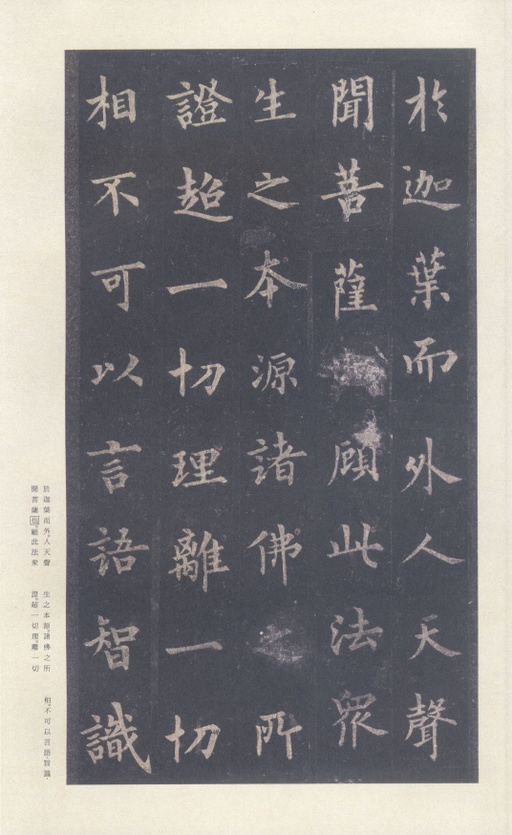 於迦葉而外人天聲
聞菩薩顧此法衆
生之本源諸佛之所
證超一切理離一切
相不可以言語智識
於迦葉而外、人天聲
聞菩薩 、顧此法衆
生之本源、諸佛之所
證。超一切理、離一切
相。不可以言語、智識、